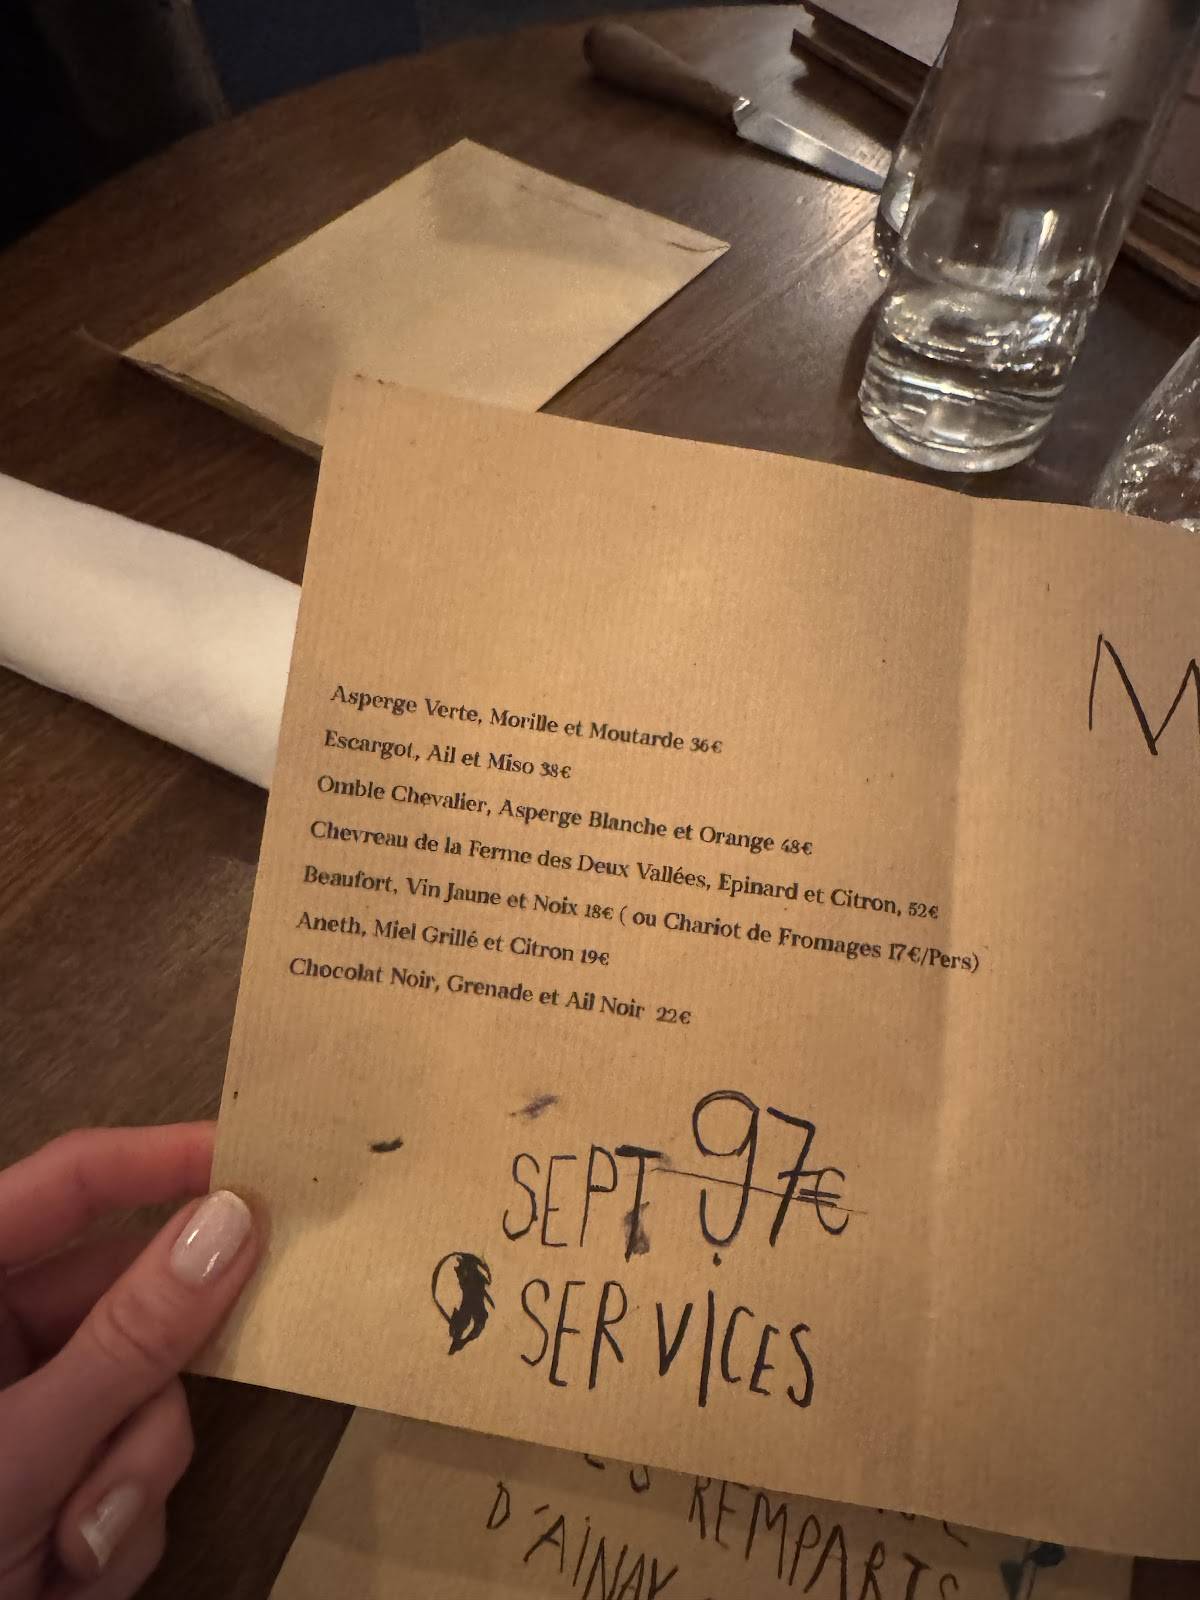 Asperge Verte, Morille et Moutarde 36€
Escargot, Ail et Miso 38€
Omble Chevalier, Asperge Blanche et Orange 48€
Chevreau de la Ferme des Deux Vallées, Epinard et Citron, 52€
Beaufort, Vin Jaune et Noix 18€ ( ou Chariot de Fromages 17€/Pers)
Aneth, Miel Grillé et Citron 19€
Chocolat Noir, Grenade et Ail Noir 22€
M
SEPT 97€
SERVICES
REMPARTS
D'AINAY